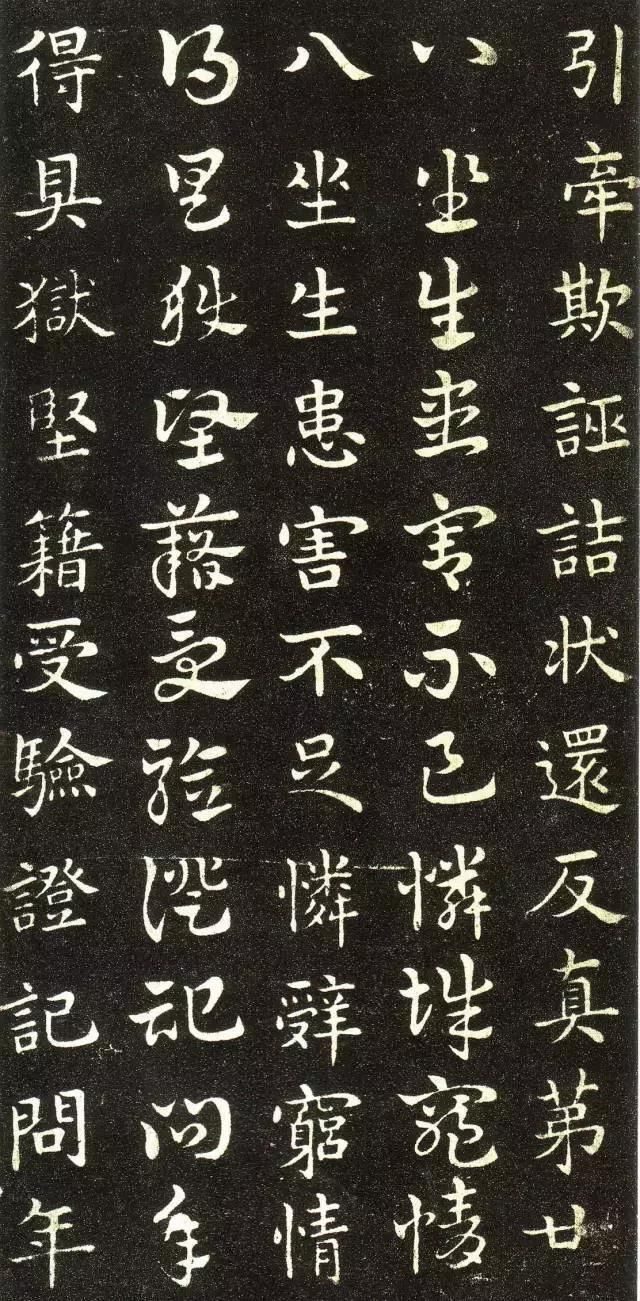 引牽欺誣詰状還反真第廿
八坐生患害不足憐辭窮情
八坐生患害不足憐辭窮情
得具獄堅籍受驗證記問年
得具獄堅籍受驗證記問年